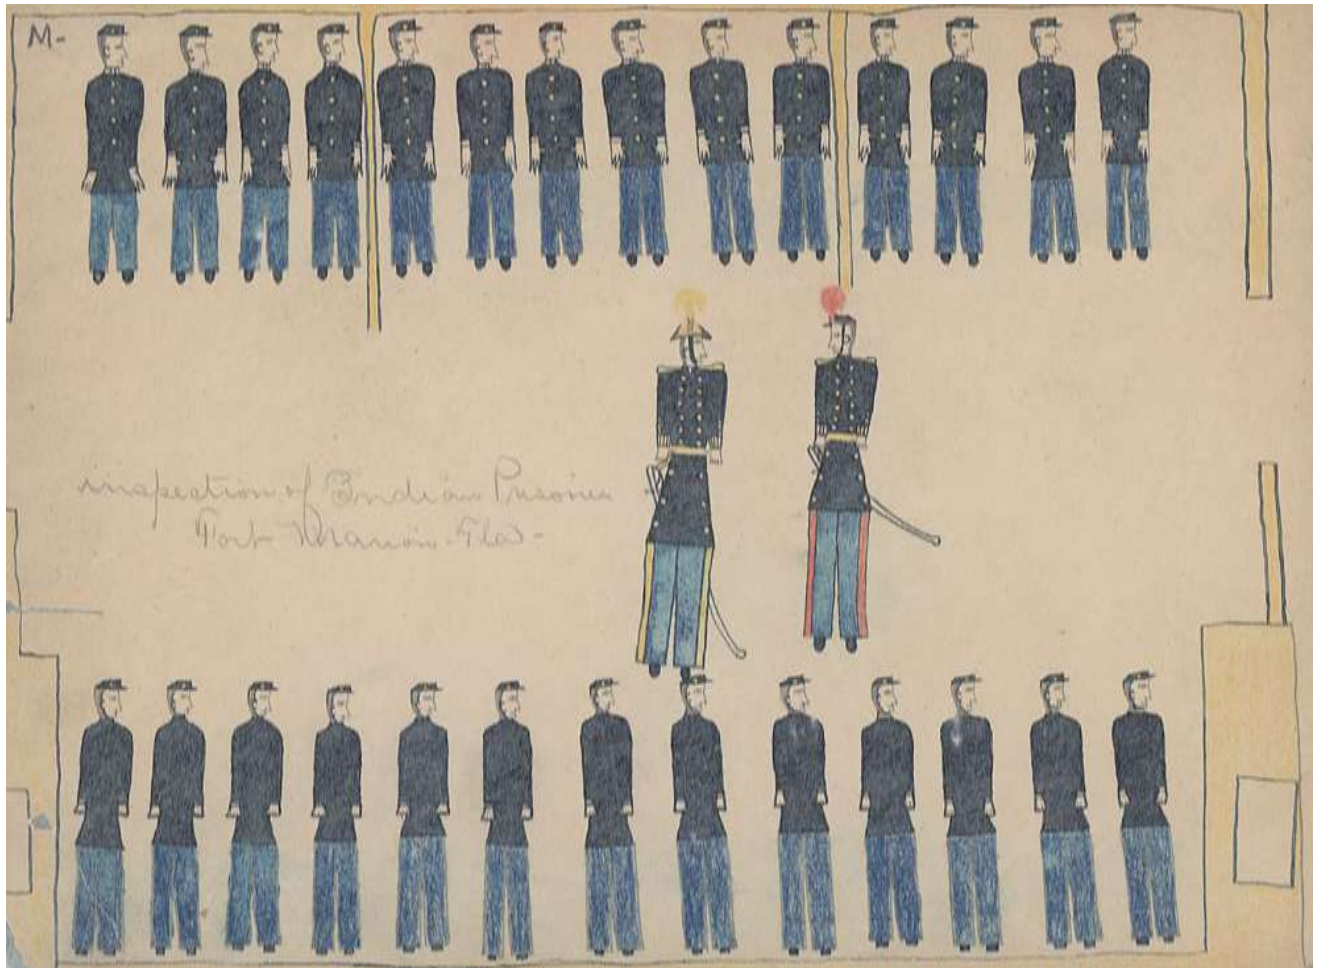 M-
inspection of Indian Prisoners -
Fort Marion. Fla-